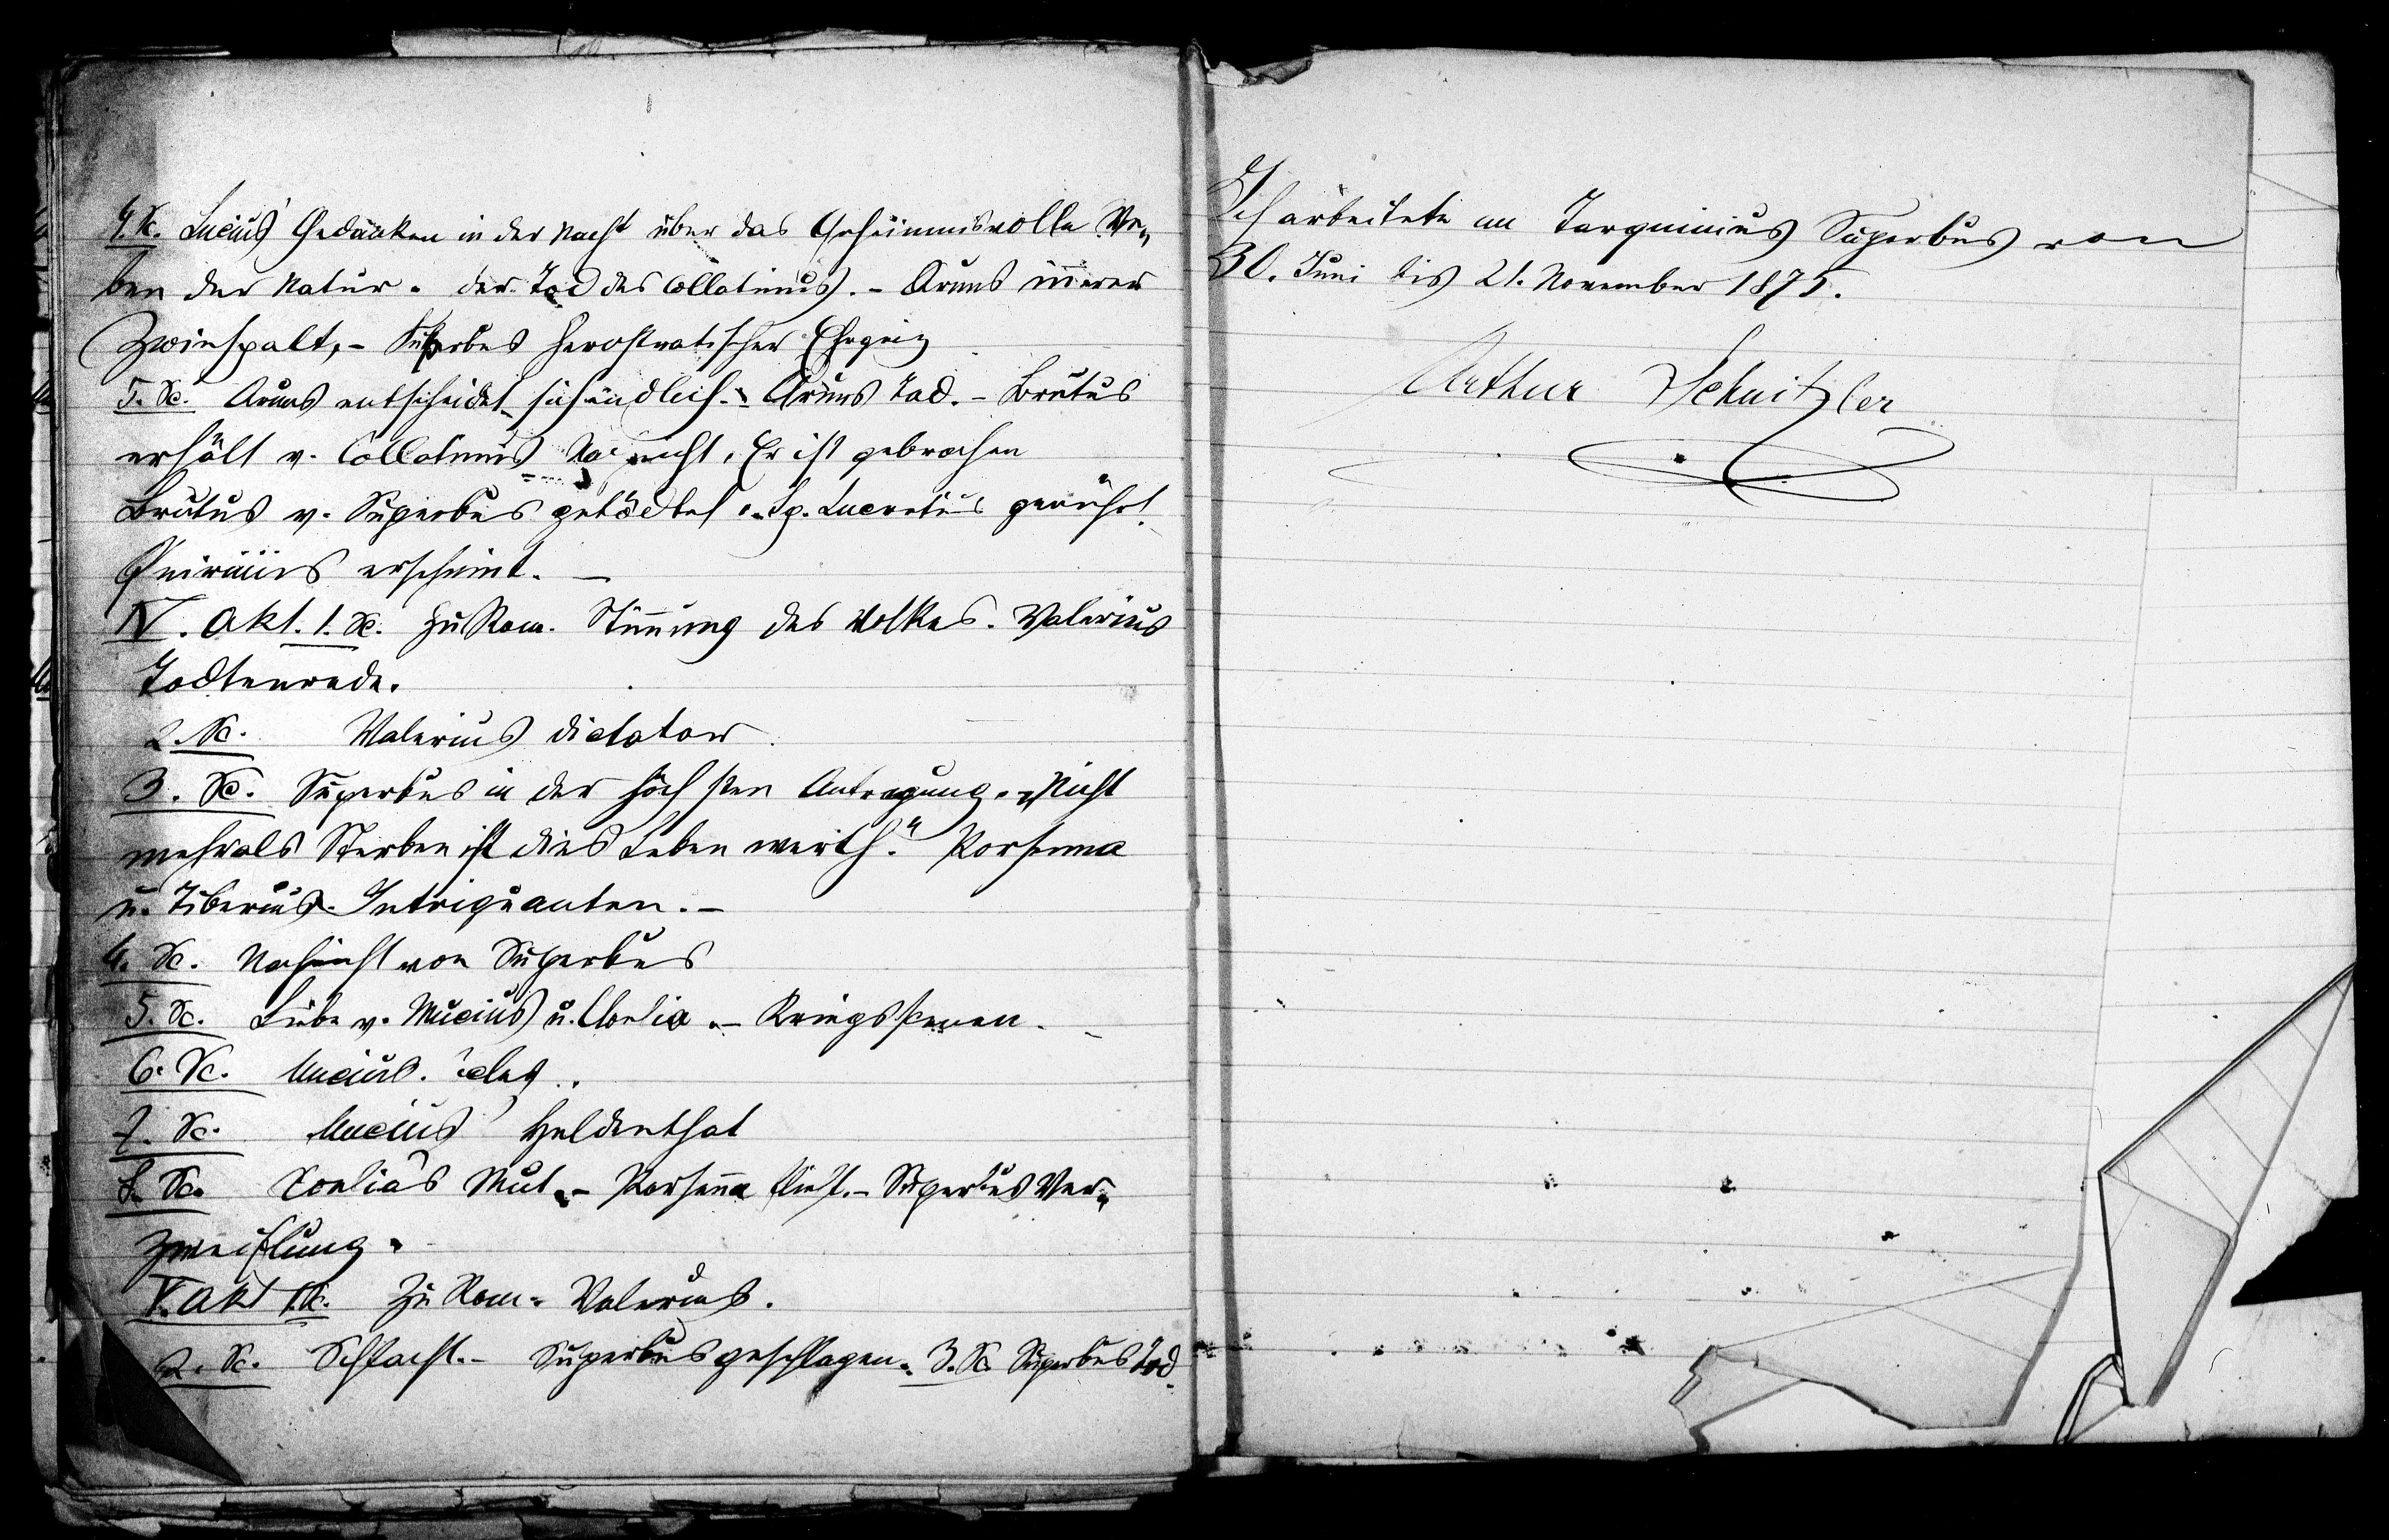 4. Sc. Lucius' Gedanken in der Nacht über das Geheimnisvolle We„
ben der Natur. der Tod des Collatinus. – Aruns innerer
Zwiespalt, – Superbus herostratischer Ehrgeiz
5. Sc. Aruns entscheidet sich endlich. – Aruns Tod. – Brutus
erhält v. Collatinus Nachricht. Er ist gebrochen
Brutus v. Superbus getödtet. Sp. Lucretius gerührt.
Quirinus erscheint. –
IV. Akt. 1. Sc. Zu Rom. Stimmung des Volkes. Valerius
Todtenrede.
2. Sc. Valerius dictator.
3. Sc. Superbus in der höchsten Aufregung. „Nicht
mehr als Sterben ist dies Leben werth." Porsenna
u. Tiberius. Intriguanten. –
4. Sc. Nachricht von Superbus
5. Sc. Liebe v. Mucius u. Cloelia. – Kriegsscenen. –
6. Sc. Mucius.
7. Sc. Mucius' Heldenthat
8. Sc. Cloelia's Mut. – Porsenna flieht. – Superbus Ver„
zweiflung.
V. Akt 1. Sc. Zu Rom. Valerius.
2. Sc. Schlacht. – Superbus geschlagen. 3. Sc. Superbus Tod.
Ich arbeitete an Tarquinius Superbus von
30. Juni bis 21. November 1875.
Arthur Schnitzler